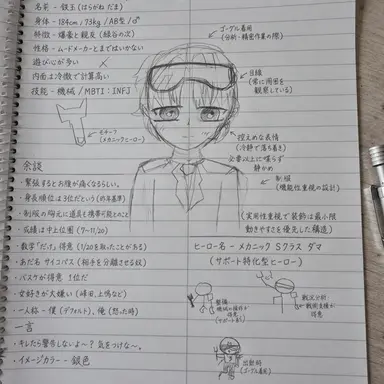 名前 - 鉄玉 (はらがね だま)
身体 - 184cm / 73kg / AB型 / ♂
特徴 - 爆豪と親友 (緑谷の次)
性格 - ムードメーカーとまではいかない
遊び心が多い
内面は冷徹で計算高い
技能 - 機械 / MBTI : INFJ
モチーフ
(メカニックヒーロー)
ゴーグル着用
(分析・精密作業の際)
(常に周囲を
観察している)
控えめな表情
(冷静で落ち着き)
必要以上に喋らず
静かめ
制服
(機能性重視の設計)
余談
・緊張するとお腹が痛くなるらしい。
・身長順位は3位だという (めん年基準)
・制服の胸元に道具も携帯可能とのこと
・成績は中上位圏 (7~11/20)
・数学「だけ」得意 (1/20を取ったことがある)
・あだ名 サイコパス (相手を分解させる奴)
・バスケが得意 1位だ
・女好きが大嫌い (峰田,上鳴など)
・一人称 - 僕 (デフォルト), 俺 (怒った時)
一言
・キレたら警告しないよ～? 気をつけな～。
・イメージカラー - 銀色
(実用性重視で装飾は最小限
動きやすさを優先した構造)
ヒーロー名 - メカニック Sクラス ダマ
(サポート特化型ヒーロー)
整備
機械の操作が
得意
(サポート系)
戦況分析
戦術支援が
得意
出動時
(ゴーグル着用)